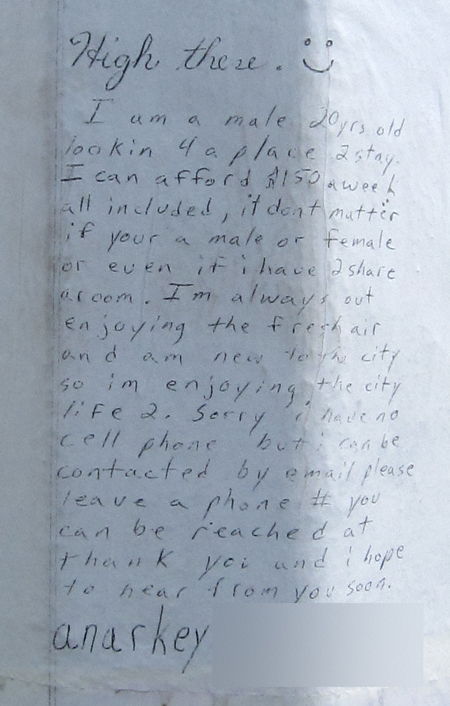 High there. :)
I am a male 20yrs old
lookin 4 a place 2stay.
I can afford $150 aweek
all included, it dont matter
if your a male or female
or even if i have 2share
aroom. I'm always out
enjoying the fresh air
and am new to the city
so im enjoying the city
life 2. Sorry i have no
cell phone but i can be
contacted by email please
leave a phone # you
can be reached at
thank you and i hope
to hear from you soon.
anarkey